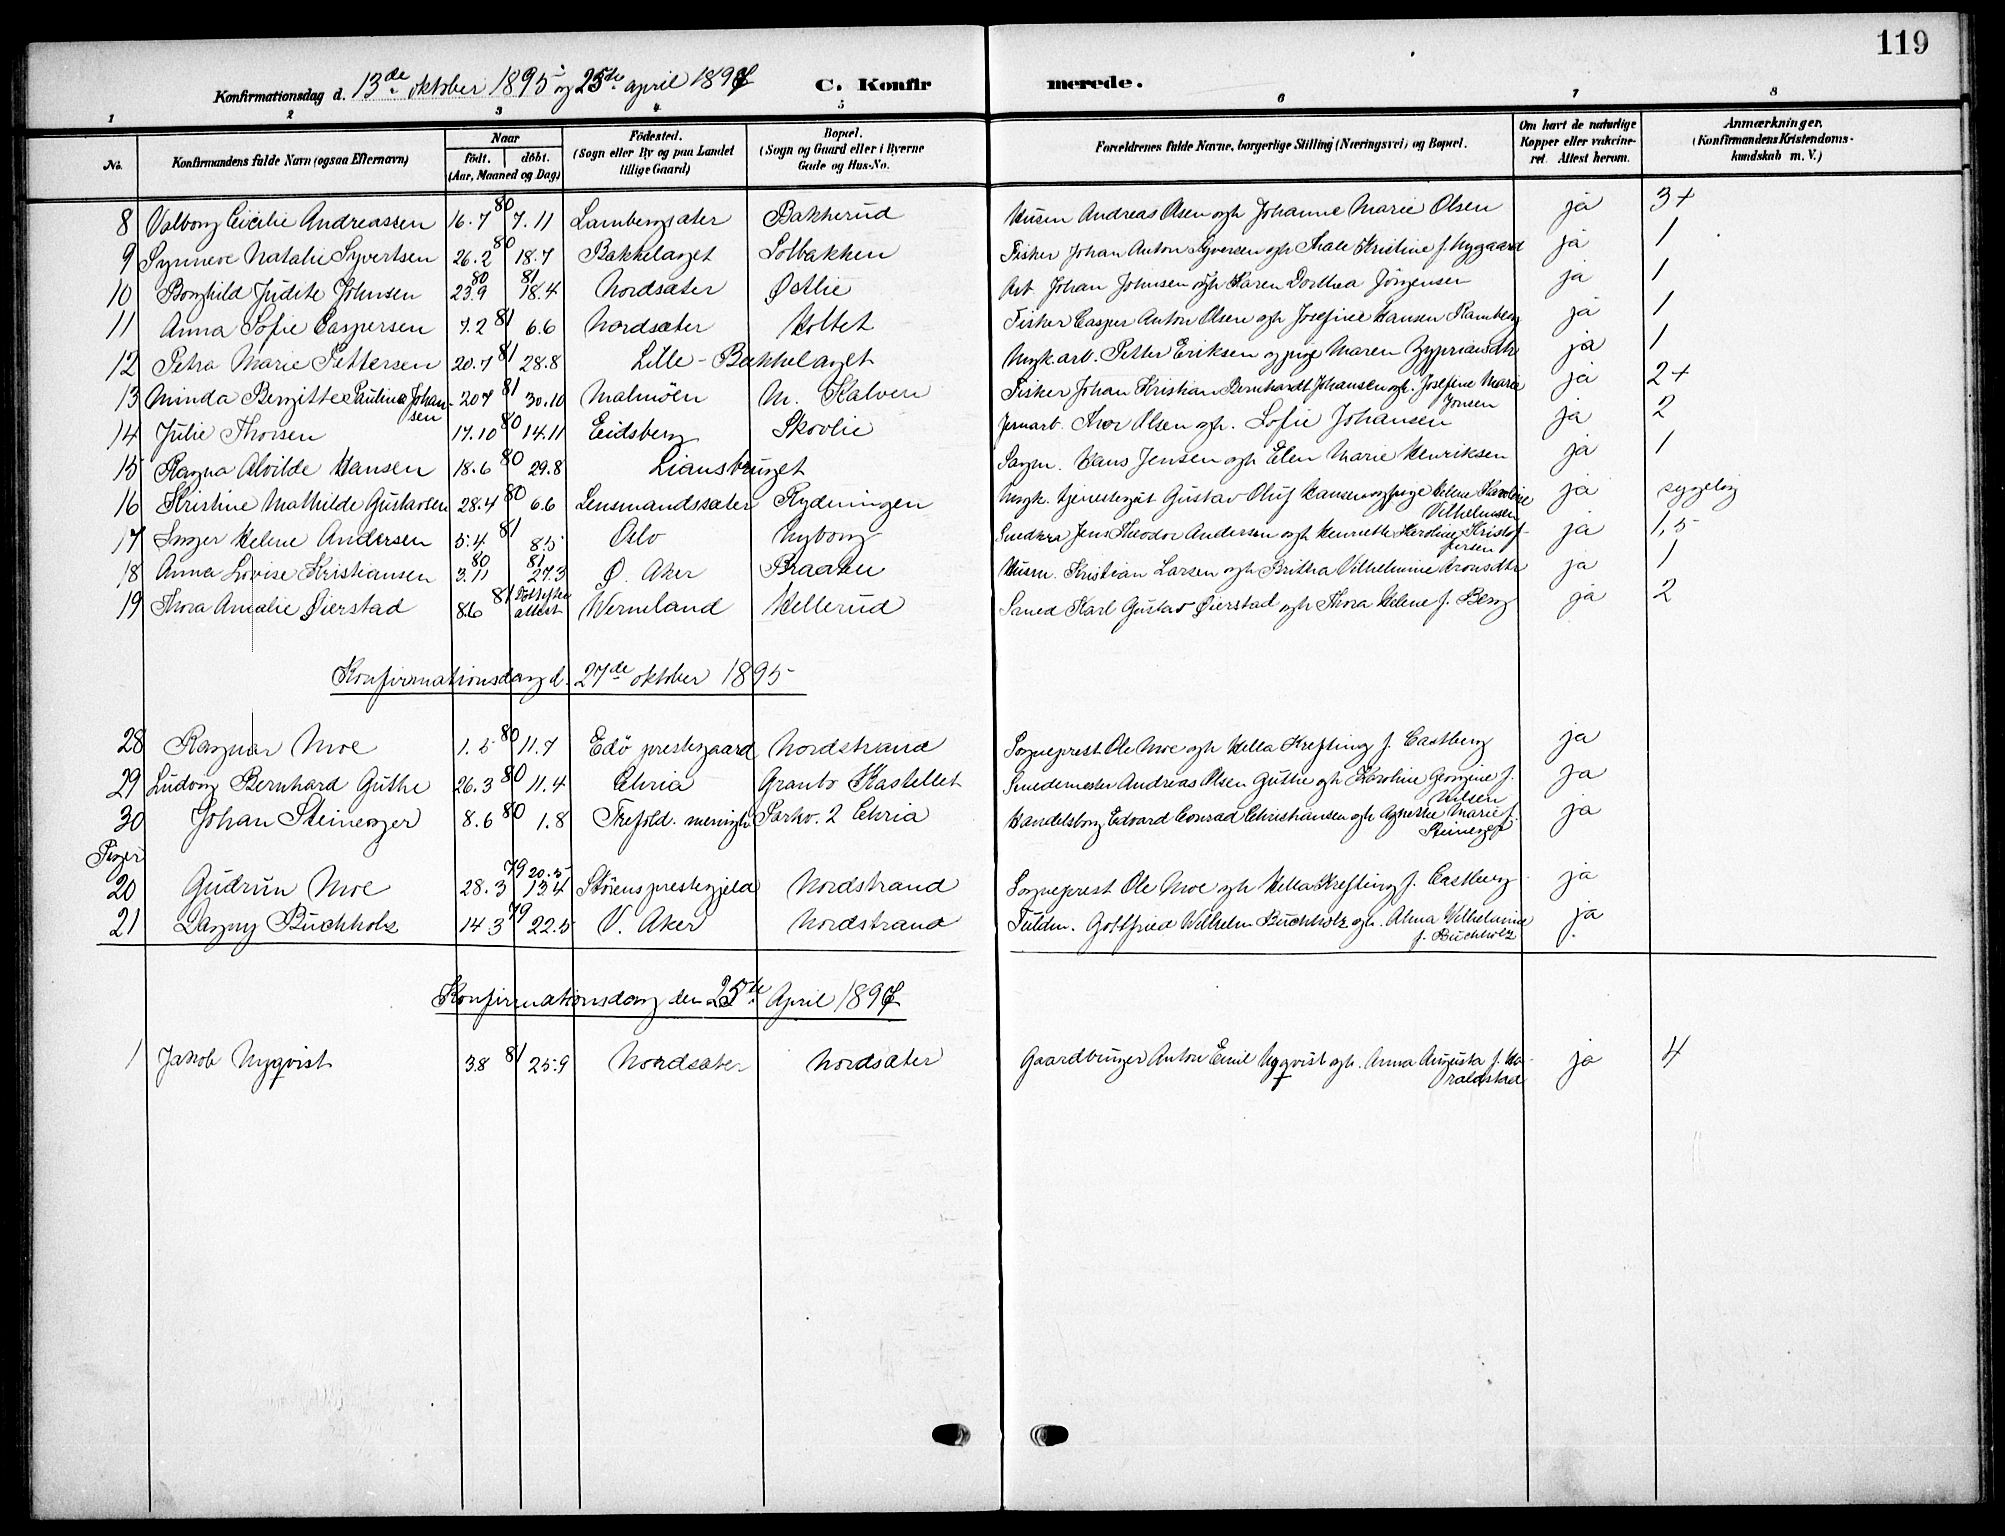 119
Konfirmationsdag d. 13de oktober 1895 og 25de april 1896 C. Konfir merede.
1 2 3 4 5 6 7 8
No. Konfirmandens fulde Navn (ogsaa Efternavn) Naar født. døbt. (Aar, Maaned og Dag) Fødested. (Sogn eller By og paa Landet tillige Gaard) Bopæl. (Sogn og Gaard eller i Byerne Gade og Hus-No. Forældrenes fulde Navne, borgerlige Stilling (Næringsvei) og Bopæl. Om havt de naturlige Kopper eller vakcineret. Attest herom. Anmærkninger. (Konfirmandens Kristendomskundskab m. V.)
8 Valborg Cicilie Andreassen 16.7 80 7.11 Lambergsæter Bakkerud Husm Andreas Olsen ogh Johanne Marie Olsen ja 3+
9 Synneve Natalie Syvertsen 26.2 80 18.7 Bækkelaget Solbakken Fisker Johan Anton Syversen ogh Thale Kristine f. Nygaard ja 1
10 Borghild Judite Johnsen 23.9 80 81 18.4 Nordsæter Østlie Arb Johan Johnsen ogh Karen Dorthea Jørgensen ja 1
11 Anna Sofie Caspersen 7.2 81 6.6 Nordsæter Holtet Fisker Casper Anton Olsen ogh Josefine Hansen Ramberg ja 1
12 Petra Marie Pettersen 20.7 81 28.8 Lille-Bækkelaget Ungk. arb. Petter Eriksen og pige Maren Zypriansdtr ja 1
13 Minda Bergitte Paulina Johansen 20.7 81 30.10 Malmöen N. Kalven Fisker Johan Kristian Bernhardt Johansen ogh. Josefine Marie Jonsen ja 2+
14 Julie Thorsen 17.10 80 14.11 Eidsberg Skovlie Jernarb. Thor Olsen ogh. Sofie Johansen ja 2
15 Ragna Alvilde Hansen 18.6 80 29.8 Liansbruget Sagm. Hans Jensen ogh Elen Marie Henriksen ja 1
16 Kristine Mathilde Gustavsen 28.4 80 6.6 Lensmandssæter Rydningen Ungk. tjenestegut Gustav Oluf Hansen og pige Helene Karoline Vilhelmsen ja sygelig
17 Inger Helene Andersen 5.4 81 8.5 Oslo Nyborg Snedker Jens Theodor Andersen ogh Henriette Karoline Kristoffersen ja 1,5
18 Anna Lovise Kristiansen 3.11 80 81 27.3 Ø. Aker Braaten Husm. Kristian Larsen ogh Britha Vilhelmine Aronsdtr ja 1
19 Thora Amalie Øierstad 8.6 81 attest Verneland Hellerud Smed Karl Gustav Øierstad ogh Thora Helene f. Berg ja 2
Konfirmationsdag d. 27de oktober 1895
28 Ragnar Moe 1.5 80 11.7 Edö prestegaard Nordstrand Sogneprest Ole Moe ogh Hella Krefting f. Castberg ja
29 Ludvig Bernhard Guthe 26.3 80 11.4 Chria Kastellet Smedemester Andreas Olsen Guthe ogh Karoline Georgine f. Nilsen ja
30 Johan Steineger 8.6 80 1.8 Trefold. menigh Parkv. 2 Chria Handelsborg Edvard Conrad Christiansen ogh Agnethe Marie f. Steineger ja
Piger
20 Gudrun Moe 28.3 79 20.5 13.4 Störens prestegjeld Nordstrand Sogneprest Ole Moe ogh Hella Krefting f. Castberg ja
21 Dagny Buchholz 14.3 79 22.5 V. Aker Nordstrand Fuldm. Gottfried Wilhelm Buchholz ogh. Alma Vilhelmine f. Buchholz ja
Konfirmationsdag den 25de April 1896
1 Jakob Nyqvist 3.8 81 25.9 Nordsæter Nordsæter Gaardbruger Anton Emil Nyqvist ogh. Anna Augusta f. Haraldstad ja 4